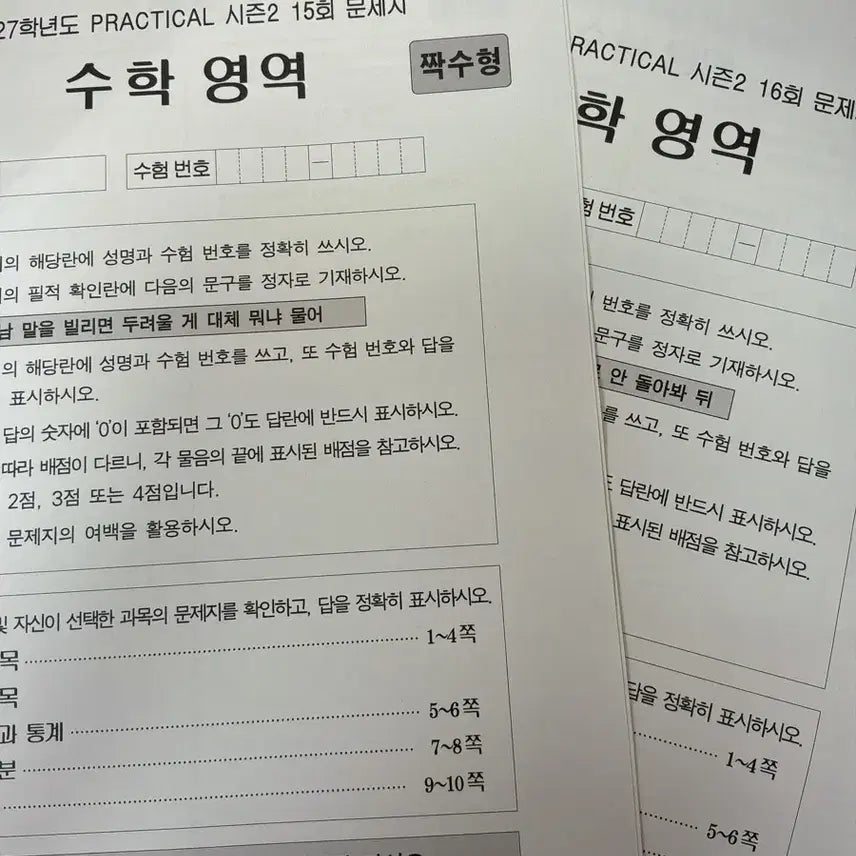 27학년도 PRACTICAL 시즌2 15회 문제지
수학 영역
짝수형
수험 번호
의 해당란에 성명과 수험 번호를 정확히 쓰시오.
의 필적 확인란에 다음의 문구를 정자로 기재하시오.
말을 빌리면 두려울 게 대체 뭐냐 물어
의 해당란에 성명과 수험 번호를 쓰고, 또 수험 번호와 답을
표시하시오.
답의 숫자에 '0'이 포함되면 그 '0'도 답란에 반드시 표시하시오.
따라 배점이 다르니, 각 물음의 끝에 표시된 배점을 참고하시오.
2점, 3점 또는 4점입니다.
문제지의 여백을 활용하시오.
및 자신이 선택한 과목의 문제지를 확인하고, 답을 정확히 표시하시오.
목 1~4쪽
목
과 통계 5~6쪽
분 7~8쪽
9~10쪽
RACTICAL 시즌2 16회 문제
학 영역
험 번호
번호를 정확히 쓰시오.
문구를 정자로 기재하시오.
안 돌아봐 뒤
를 쓰고, 또 수험 번호와 답을
답란에 반드시 표시하시오.
표시된 배점을 참고하시오.
답을 정확히 표시하시오.
1~4쪽
5~6쪽